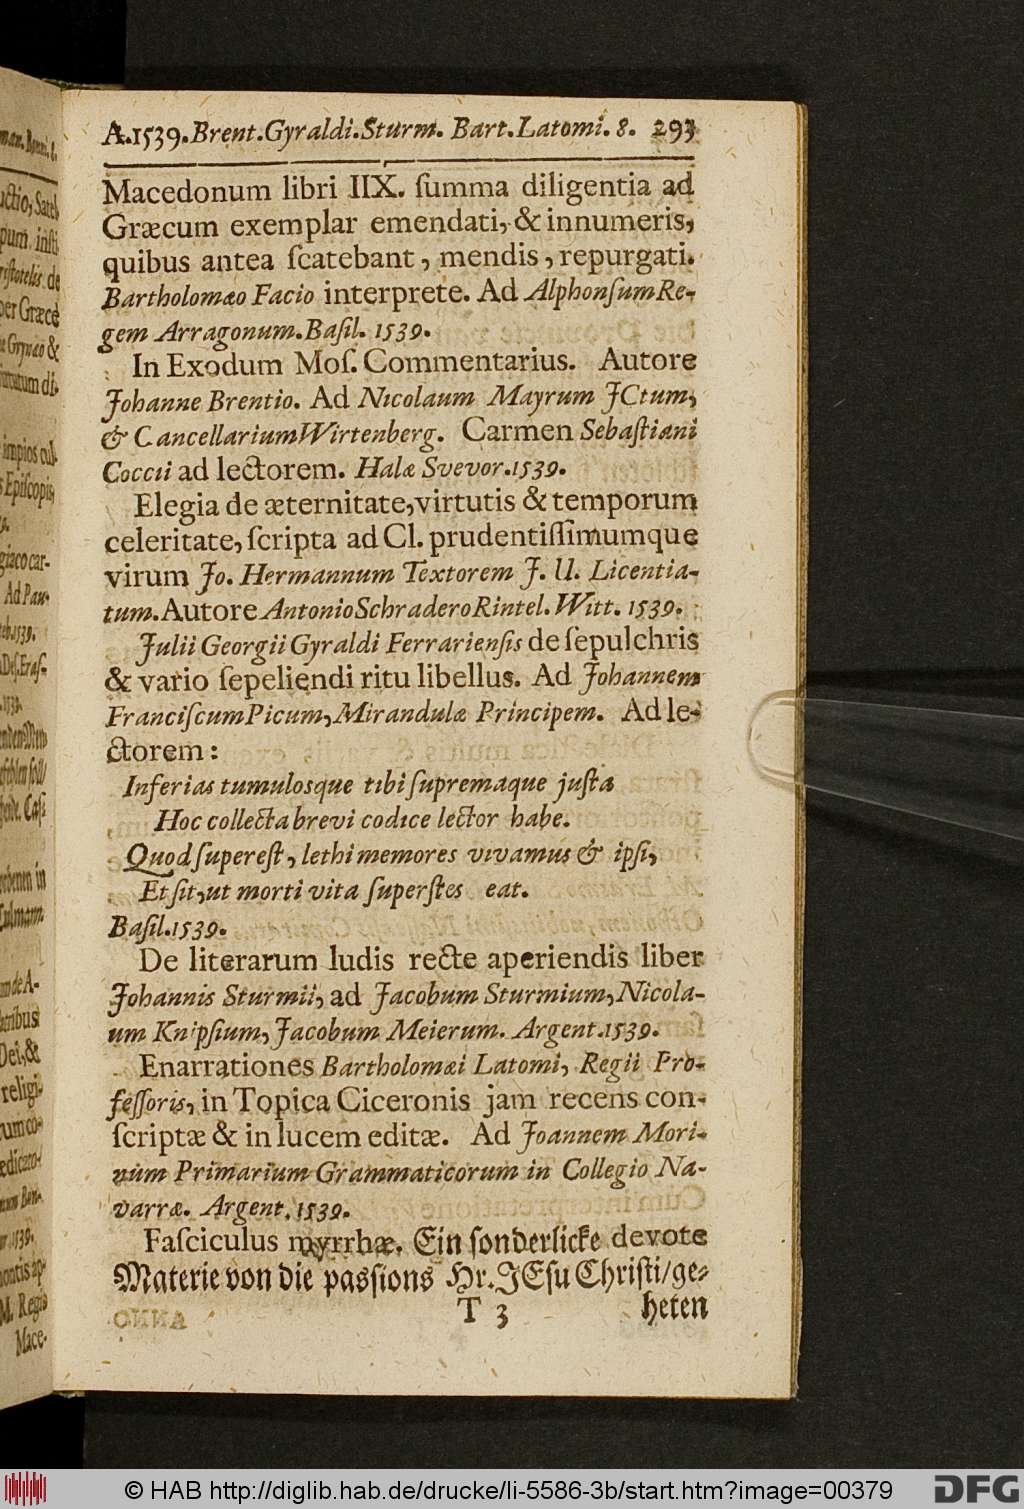 A.1539. Brent. Gyraldi. Sturm. Bart. Latomi. 8. 293
Macedonum libri IIX. ſumma diligentia ad
Græcum exemplar emendati, & innumeris,
quibus antea ſcatebant, mendis, repurgati.
Bartholomæo Facio interprete. Ad Alphonſum Re-
gem Arragonum. Baſil. 1539.
In Exodum Moſ. Commentarius. Autore
Johanne Brentio. Ad Nicolaum Mayrum JCtum,
& Cancellarium Wirtenberg. Carmen Sebaſtiani
Coccii ad lectorem. Halæ Svevor. 1539.
Elegia de æternitate, virtutis & temporum
celeritate, ſcripta ad Cl. prudentiſſimumque
virum Jo. Hermannum Textorem J. U. Licentia-
tum. Autore Antonio Schradero Rintel. Witt. 1539.
Julii Georgii Gyraldi Ferrarienſis de ſepulchris
& vario ſepeliendi ritu libellus. Ad Johannem
Franciſcum Picum, Mirandulæ Principem. Ad le-
ctorem:
Inferias tumulosque tibi ſupremaque juſta
Hoc collecta brevi codice lector habe.
Quod ſupereſt, lethi memores vivamus & ipſi,
Et ſit, ut morti vita ſuperſtes eat.
Baſil. 1539.
De literarum ludis recte aperiendis liber
Johannis Sturmii, ad Jacobum Sturmium, Nicola-
um Knipſium, Jacobum Meierum. Argent. 1539.
Enarrationes Bartholomæi Latomi, Regii Pro-
feſſoris, in Topica Ciceronis jam recens con-
ſcriptæ & in lucem editæ. Ad Joannem Mori-
num Primarium Grammaticorum in Collegio Na-
varræ. Argent. 1539.
Faſciculus myrrhæ. Ein ſonderlicke devote
Materie von die paſsions Hr. JEſu Chriſti/ ge-
T 3 heten
© HAB http://diglib.hab.de/drucke/li-5586-3b/start.htm?image=00379
DFG